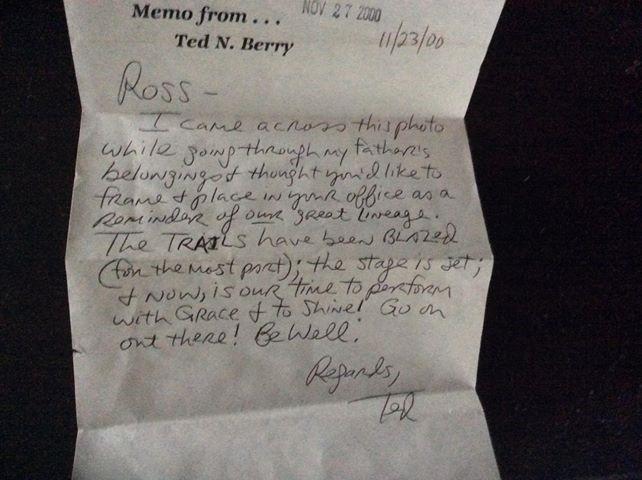 Memo from . . .
NOV 27 2000
Ted N. Berry
11/23/00
Ross -
I came across this photo
while going through my father's
belongings & thought you'd like to
frame & place in your office as a
reminder of our great lineage.
The TRAILS have been BLAZED
(for the most part); the stage is set;
& now, is our time to perform
with GRACE & to Shine! Go on
out there! Be Well.
Regards,
Ted